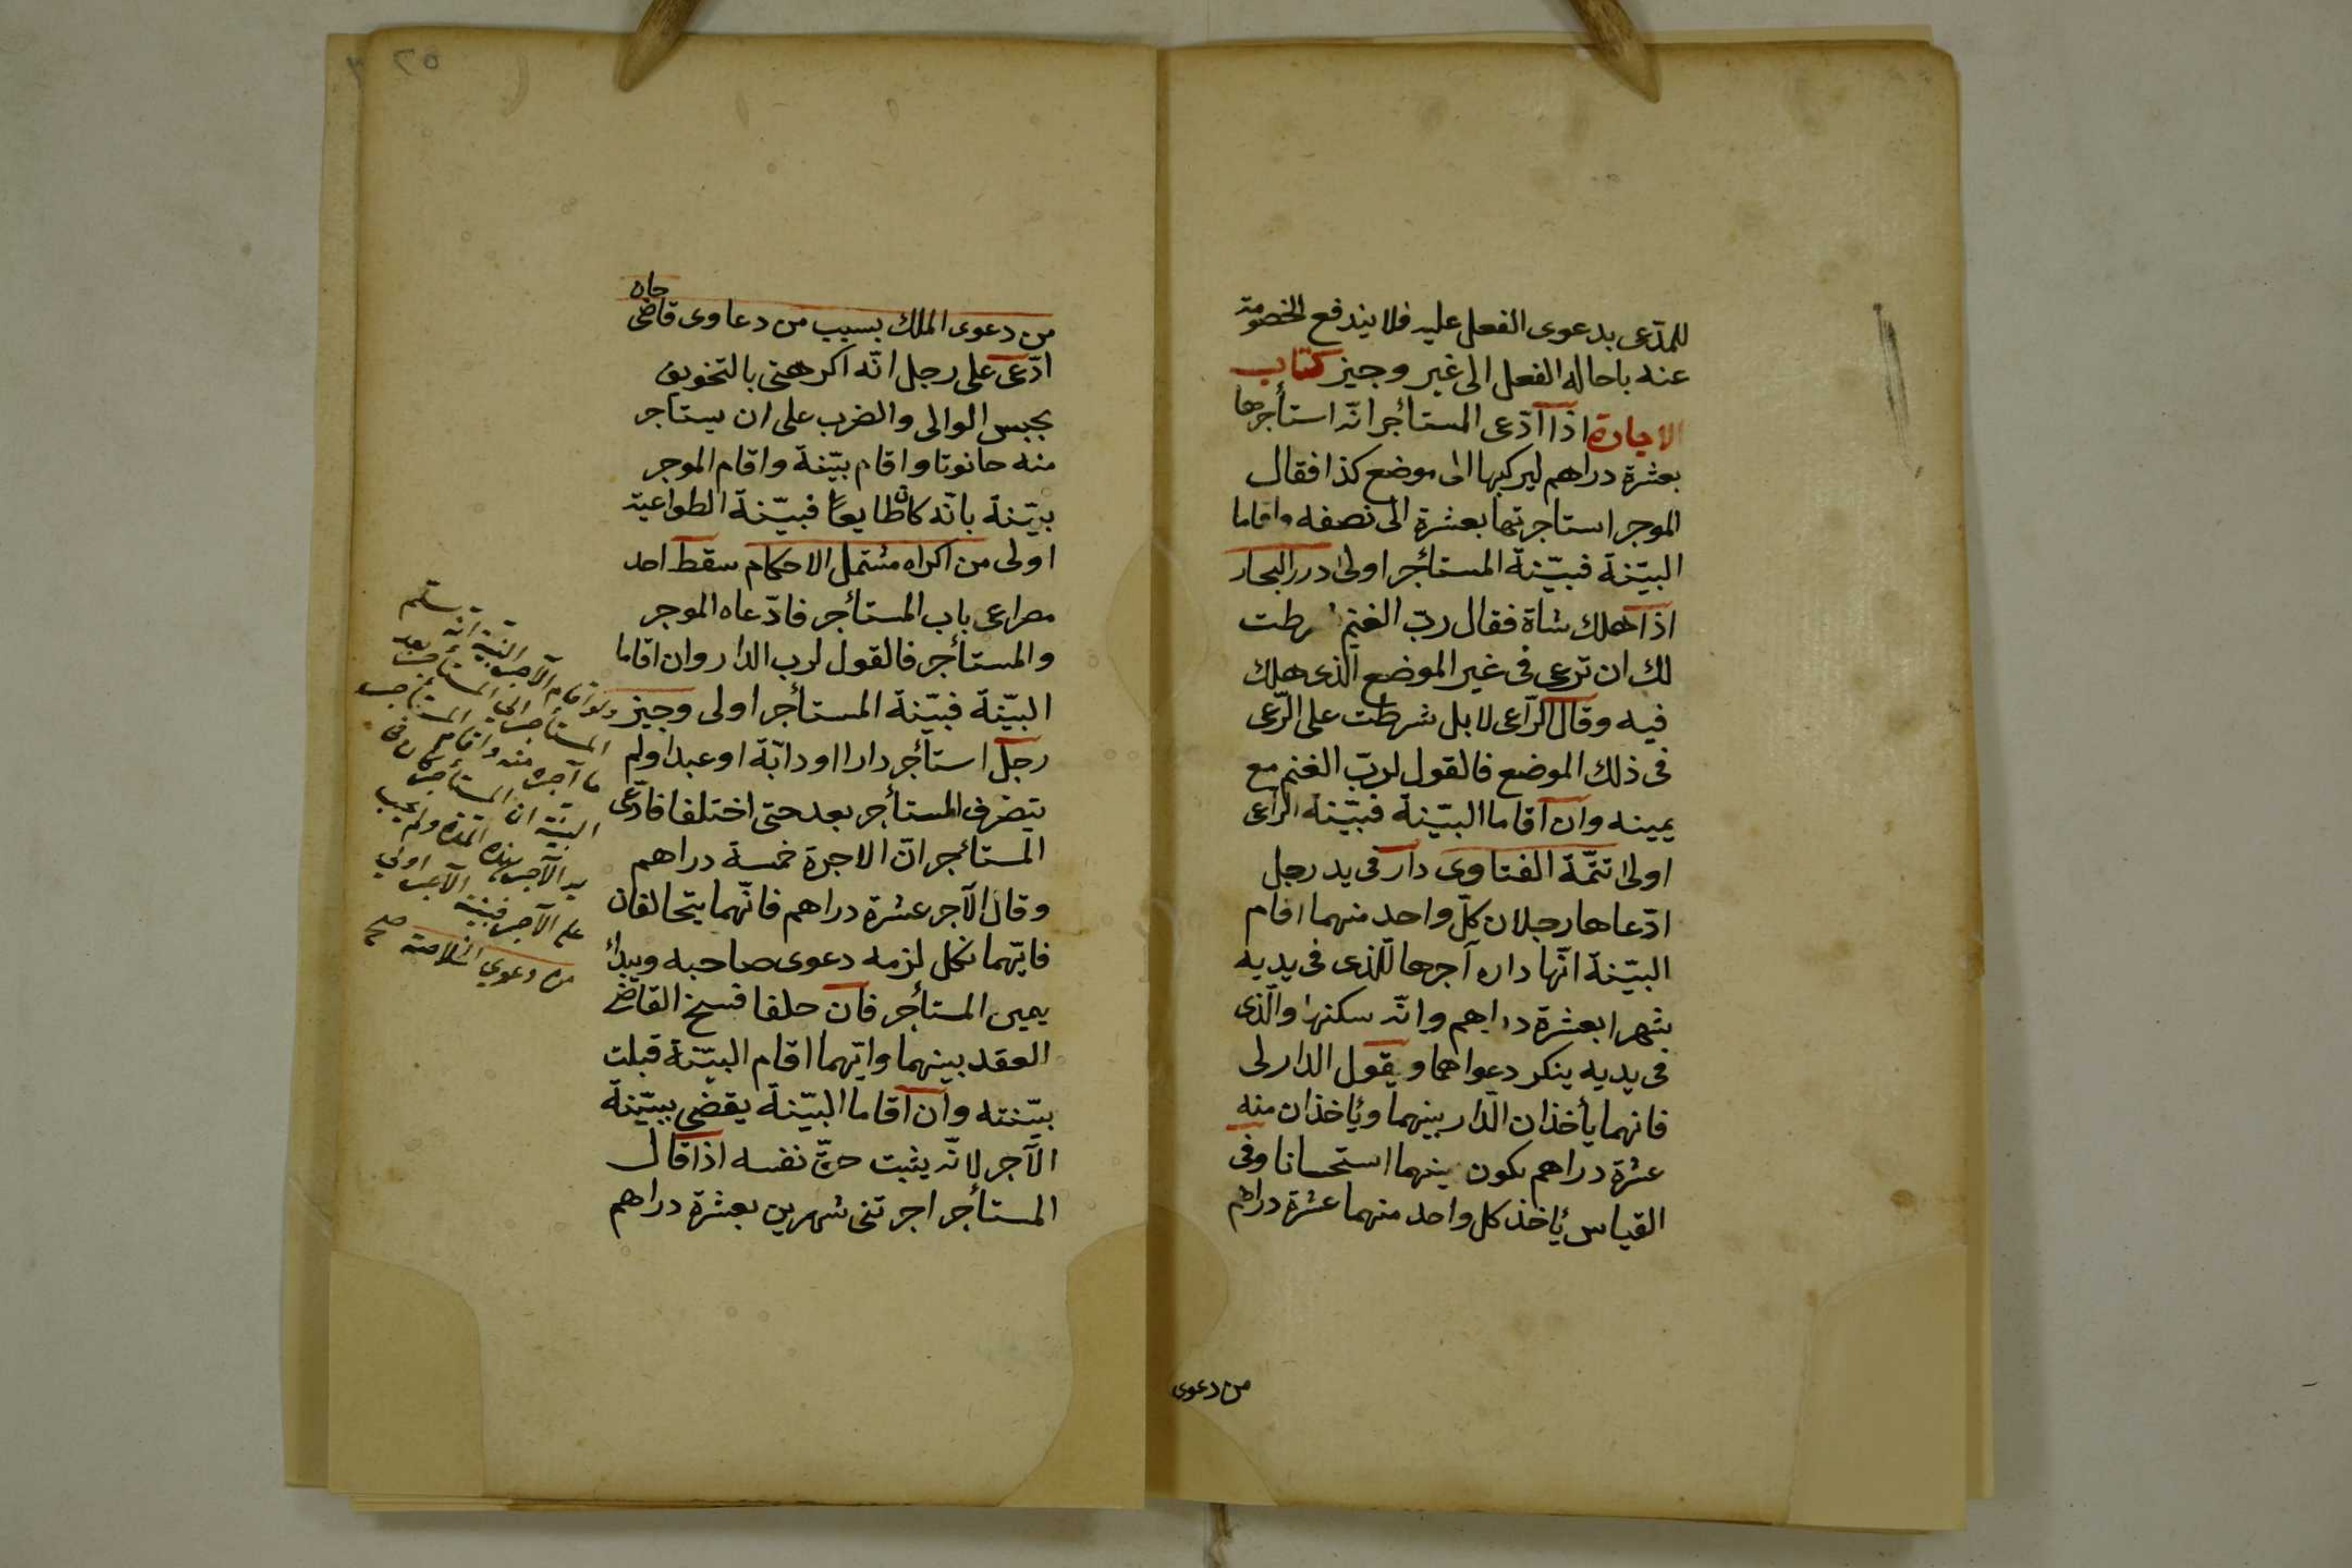 للمدّعى بدعوى الفعل عليه فلا يندفع الخصومة
عنه باحالة الفعل الى غير وجيز كتاب
الاجارة اذا ادّعى المستأجر انّه استأجرها
بعشرة دراهم ليركبها الى موضع كذا فقال
الموجر استاجرتها بعشرة الى نصفه واقاما
البيّنة فبيّنة المستأجر اولى درر البحار
اذا هلك شاة فقال ربّ الغنم شرطت
لك ان ترعى فى غير الموضع الذى هلك
فيه وقال الرّاعى لا بل شرطت على الرّعى
فى ذلك الموضع فالقول لربّ الغنم مع
يمينه وان اقاما البيّنة فبيّنة الراعى
اولى تتمّة الفتاوى دار فى يد رجل
ادّعاها رجلان كلّ واحد منهما اقام
البيّنة انّها داره آجرها للّذى فى يديه
شهرا بعشرة دراهم وانّه سكنها والّذى
فى يديه ينكر دعواهما ويقول الدار لى
فانهما يأخذان الدّار بينهما وياخذان منه
عشرة دراهم يكون بينهما استحسانا وفى
القياس ياخذ كل واحد منهما عشرة دراهم
من دعوى
٢٥
من دعوى الملك بسبب من دعاوى قاضى
خان
ادّعى على رجل انّه اكرهنى بالتخويف
بحبس الوالى والضرب على ان يستاجر
منه حانوتا واقام بيّنة واقام الموجر
بيّنة بانّه كان طايعا فبيّنة الطواعية
اولى من اكراه مشتمل الاحكام سقط احد
مصراعى باب المستأجر فادّعاه الموجر
والمستأجر فالقول لرب الدار وان اقاما
البيّنة فبيّنة المستأجر اولى وجيز
رجل استأجر دارا او دابّة او عبدا ولم
يتصرف المستأجر بعد حتى اختلفا فادّعى
المستأجر انّ الاجرة خمسة دراهم
وقال الآجر عشرة دراهم فانّهما يتحالفان
فايّهما نكل لزمه دعوى صاحبه ويبدأ
يمين المستأجر فان حلفا فسخ القاضى
العقد بينهما وايّهما اقام البيّنة قبلت
بيّنته وان اقاما البيّنة يقضى ببيّنة
الآجر لانّه يثبت حقّ نفسه اذا قال
المستأجر اجرتنى شهرين بعشرة دراهم
ولو اقام الآجر البيّنة انه سلّم
المستأجر الى المستأجر بعد
ما آجره منه واقام المستأجر
البيّنة ان المستأجر كان فى
يد الآجر بهذه المدّة ولم يجب
على الآجر فبيّنة الآجر اولى
من دعوى الخلاصة صح